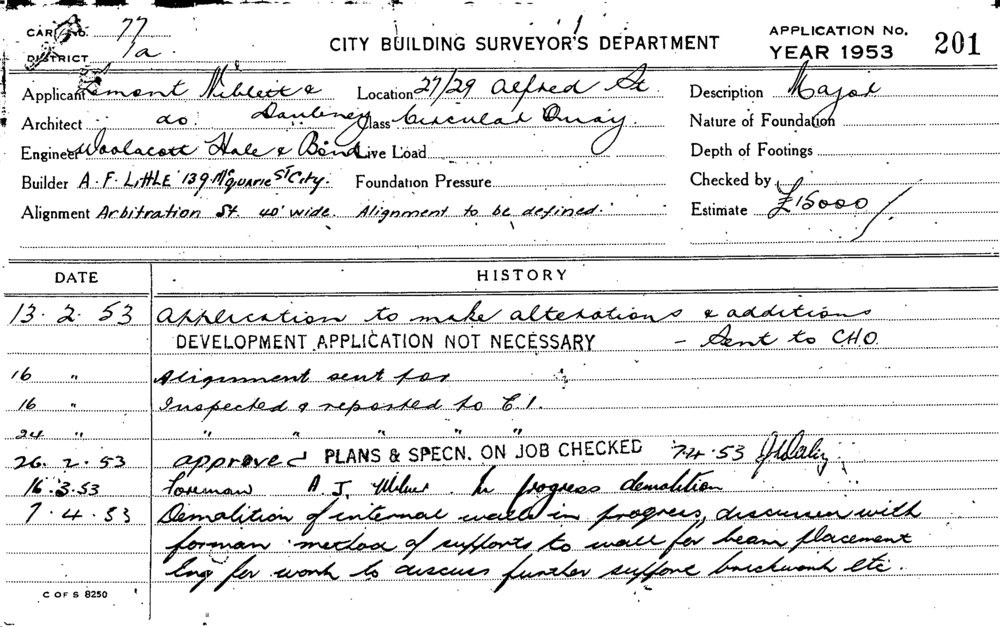 CARD No. 77
DISTRICT 1a
CITY BUILDING SURVEYOR'S DEPARTMENT
APPLICATION No.
YEAR 1953 201
Applicant Lemont Niblett & Location 27/29 Alfred St. Description Major
Architect do Daubney Class Circular Quay. Nature of Foundation
Engineer Woolacott Hale & Bond Live Load Depth of Footings
Builder A. F. Little 139 McQuarie St City. Foundation Pressure Checked by
Alignment Arbitration St. 40' wide. Alignment to be defined. Estimate £15000/
DATE HISTORY
13. 2. 53 Application to make alterations & additions
DEVELOPMENT APPLICATION NOT NECESSARY - Sent to CHO.
16 " Alignment sent for
16 " Inspected & reported to C.I.
24 " " " " " "
26. 2. 53 approved PLANS & SPECN. ON JOB CHECKED 7.4.53
16.3.53 Foreman A. J. In progress demolition
7. 4. 53 Demolition of internal walls in progress, discussed with
forman method of supports to wall for beam placement
Eng for work to discuss further support brickwork etc.
C OF S 8250